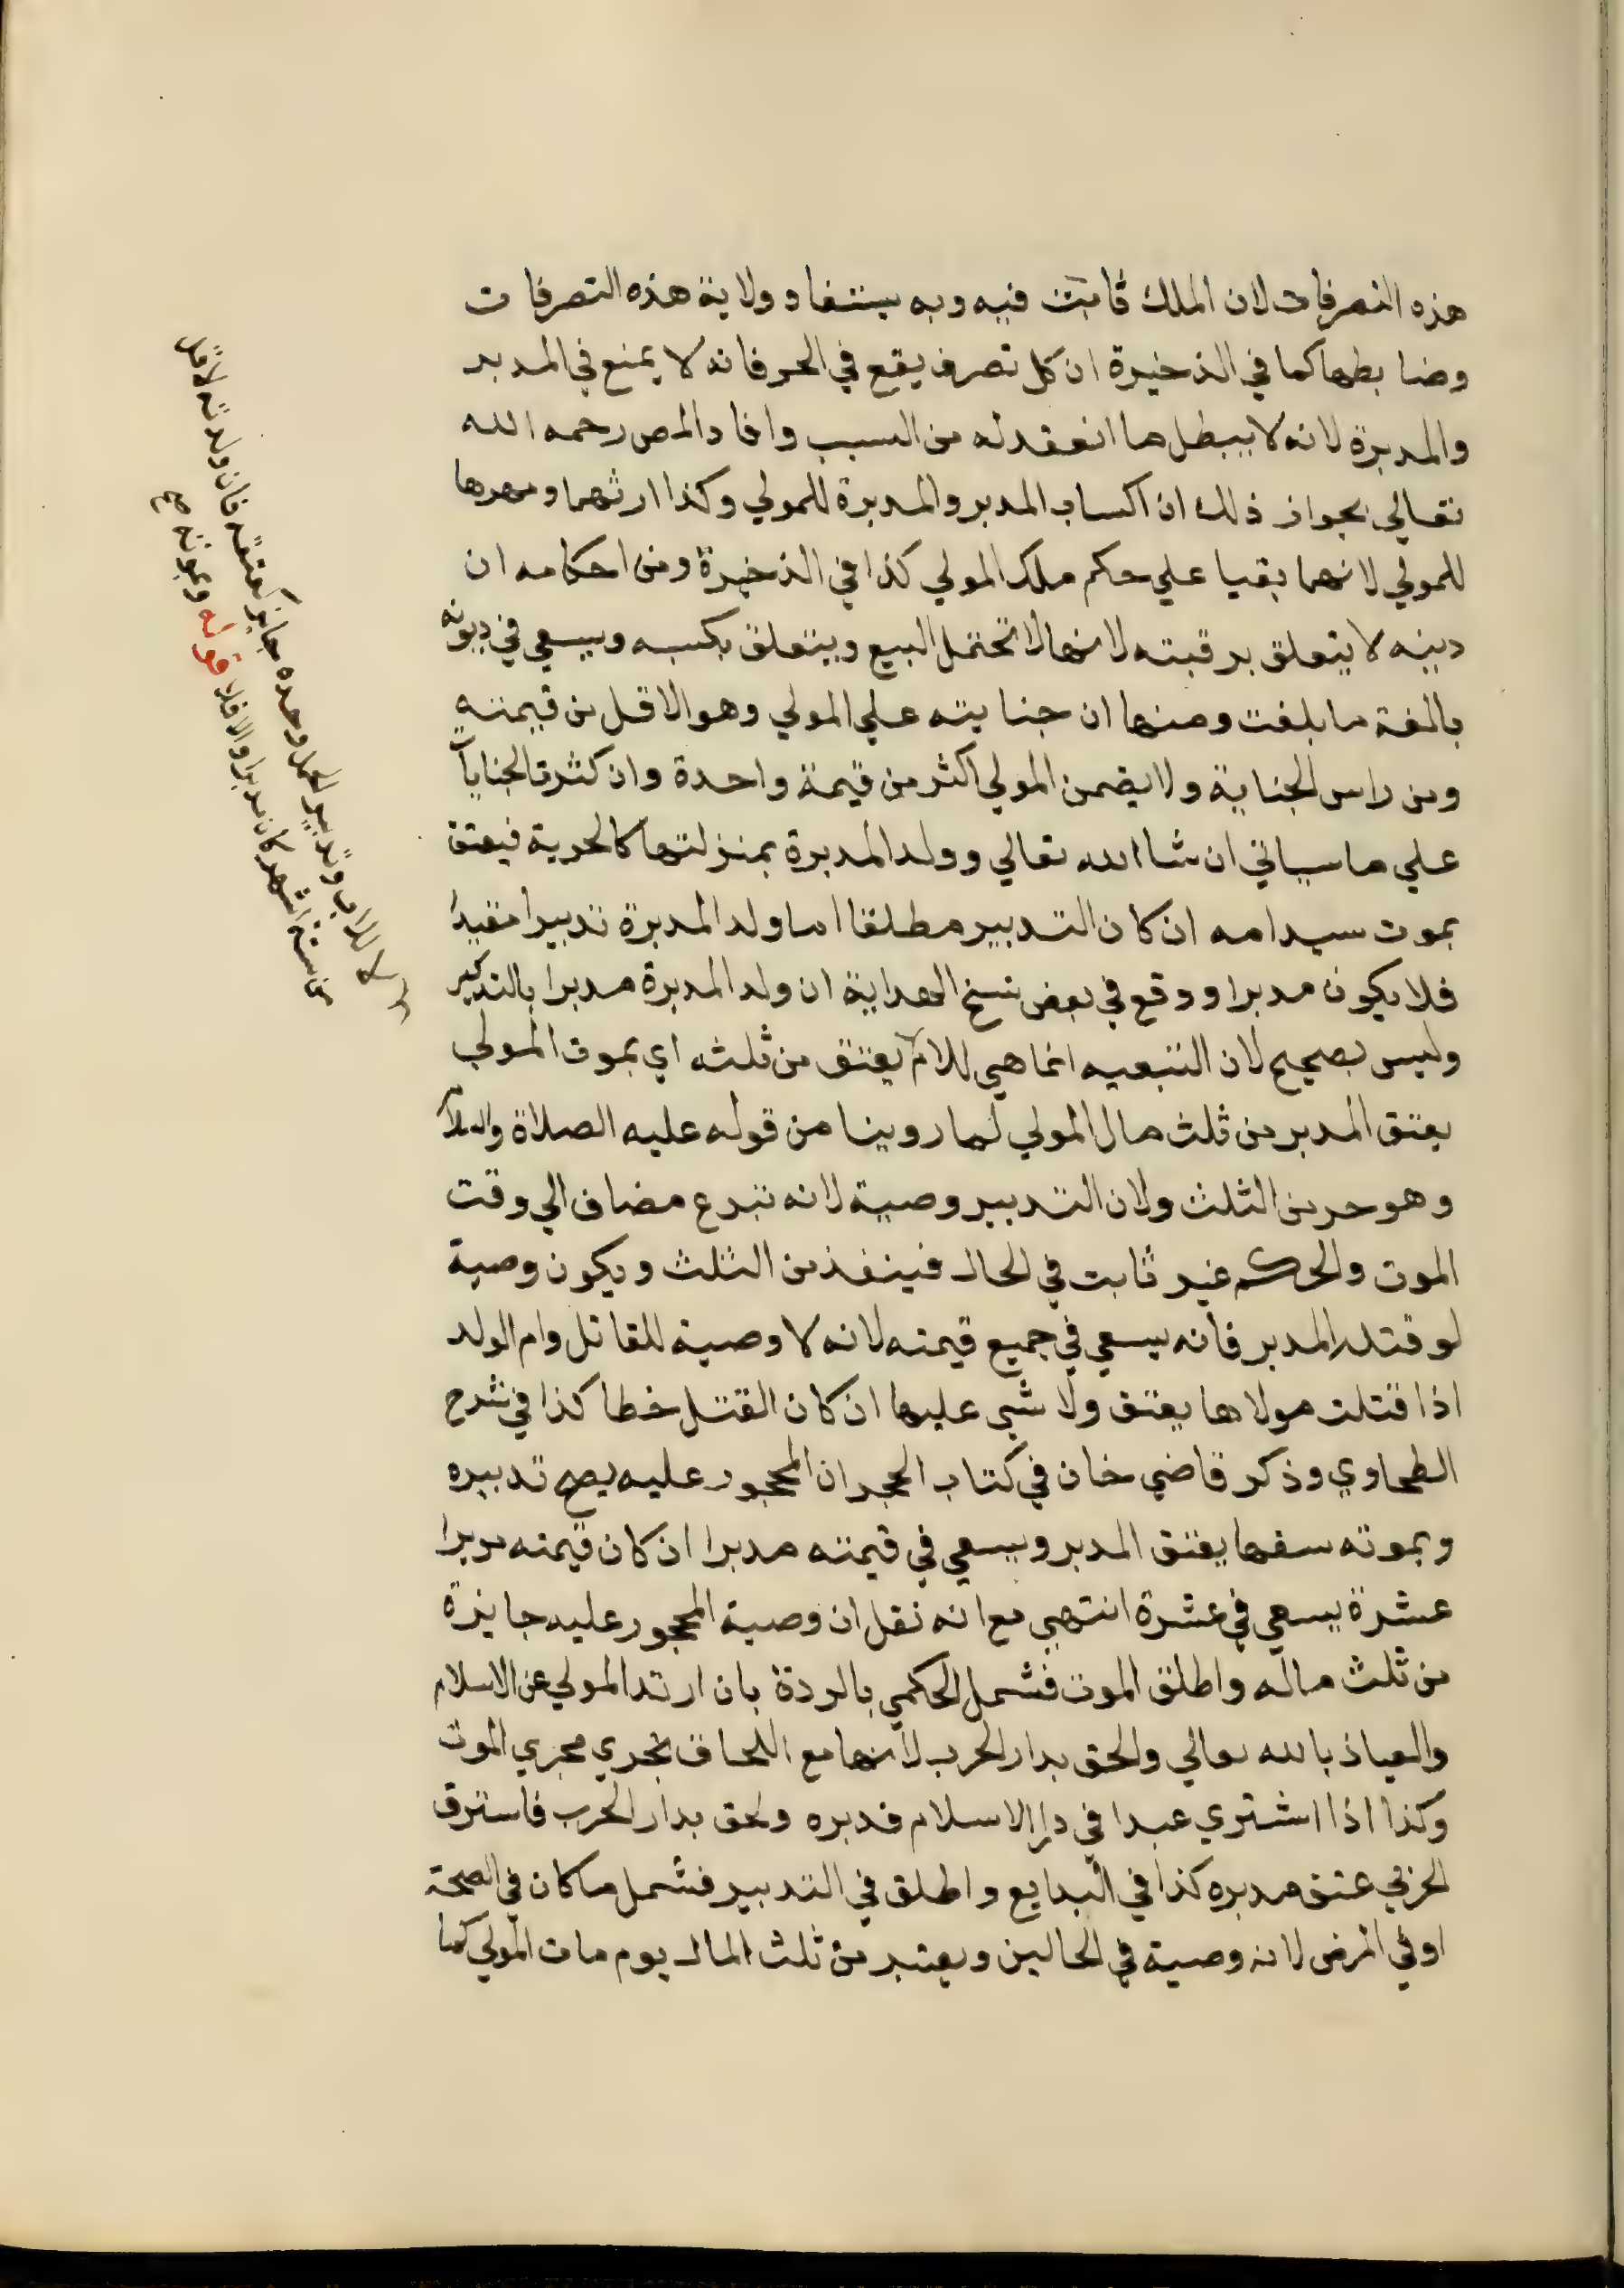 هذه التصرفات لان الملك ثابت فيه وبه يستفاد ولاية هذه التصرفات
وضابطها كما في الذخيرة ان كل تصرف يقع في الحر فانه لا يمنع في المدبر
والمدبرة لانه لا يبطل ما انعقد له من السبب وافاد المص رحمه الله
تعالي بجواز ذلك ان اكساب المدبر والمدبرة للمولي وكذا ارشهما ومهرها
للمولي لانهما بقيا علي حكم ملك المولي كذا في الذخيرة ومن احكامه ان
دينه لا يتعلق برقبته لانها لا تحتمل البيع ويتعلق بكسبه ويسعي في ديونه
بالغة ما بلغت ومنها ان جنايته علي المولي وهو الاقل من قيمته
ومن راس الجناية ولا يضمن المولي اكثر من قيمة واحدة وان كثرت الجنايات
علي ما سياتي ان شا الله تعالي وولد المدبرة بمنزلتها كالحرية فيعتق
بموت سيد امه ان كان التدبير مطلقا اما ولد المدبرة تدبيرا مقيدا
فلا يكون مدبرا ووقع في بعض نسخ الهداية ان ولد المدبرة مدبرا بالتذكير
وليس بصحيح لان التبعيه انما هي للام يعتق من ثلثه اي بموت المولي
يعتق المدبر من ثلث مال المولي لما روينا من قوله عليه الصلاة والسلام
وهو حر من الثلث ولان التدبير وصية لانه تبرع مضاف الي وقت
الموت والحكم غير ثابت في الحال فينفذ من الثلث ويكون وصية
لو قتله المدبر فانه يسعي في جميع قيمته لانه لا وصية للقاتل وام الولد
اذا قتلت مولاها يعتق ولا شي عليها ان كان القتل خطا كذا في شرح
الطحاوي وذكر قاضي خان في كتاب الحجر ان المحجور عليه يصح تدبيره
وبموته سفها يعتق المدبر ويسعي في قيمته مدبرا ان كان قيمته مدبرا
عشرة يسعي في عشرة انتهي مع انه نقل ان وصية المحجور عليه جايزة
من ثلث ماله واطلق الموت فشمل الحكمي بالردة بان ارتد المولي عن الاسلام
والعياذ بالله تعالي والحق بدار الحرب لانها مع اللحاق تجري مجري الموت
وكذا اذا اشتري عبدا في دار الاسلام فدبره ولحق بدار الحرب فاسترق
الحربي عتق مدبره كذا في البدايع واطلق في التدبير فشمل ما كان في الصحة
او في المرض لانه وصية في الحالين ويعتبر من ثلث المال يوم مات المولي كما
لا للاب وتدبير الحمل وحده جايز كعتقه فان ولدته لاقل
من ستة اشهر كان مدبرا والا فلا قوله وبموته صح